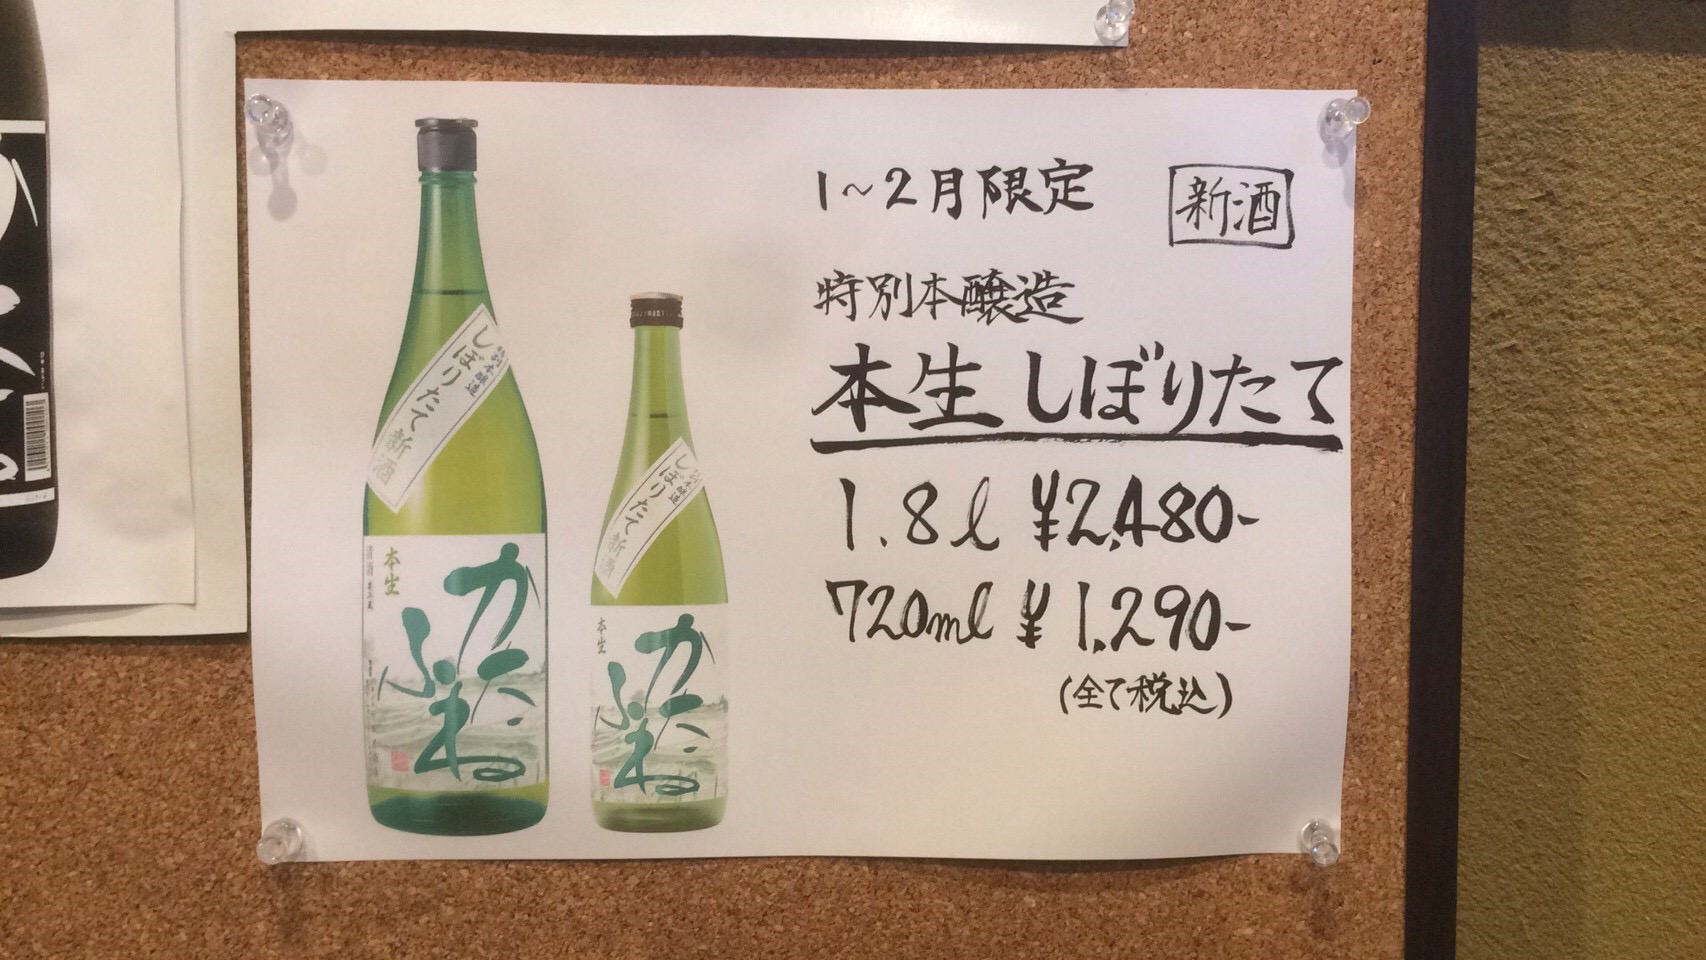 1～2月限定
新酒
特別本醸造
本生 しぼりたて
1.8l ¥2,480-
720ml ¥1,290-
(全て税込)
特別本醸造
しぼりたて新酒
本生
清酒
かたふね
しぼりたて新酒
本生
かたふね